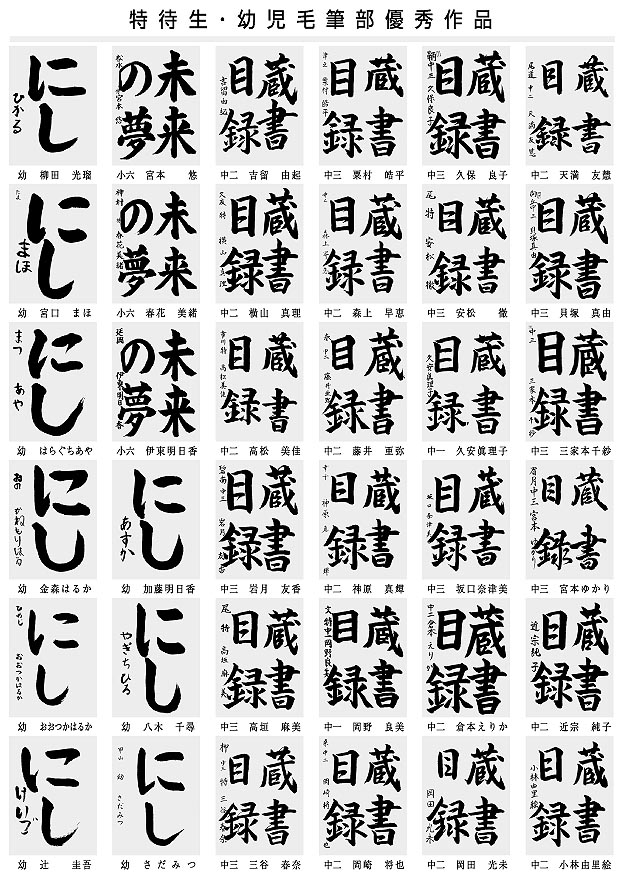 特待生・幼児毛筆部優秀作品
にし
幼 柳田 光瑠
未来の夢
小六 宮本 悠
蔵書目録
中二 吉留 由起
蔵書目録
中三 粟村 皓平
蔵書目録
中三 久保 良子
蔵書目録
中二 天満 友慧
にし
まほ
幼 宮口 まほ
未来の夢
小六 春花 美緒
蔵書目録
中二 横山 真理
蔵書目録
中二 森上 早恵
蔵書目録
中三 安松 徹
蔵書目録
中三 貝塚 真由
にし
まつ
あや
幼 はらぐちあや
未来の夢
小六 伊東明日香
蔵書目録
中二 高松 美佳
蔵書目録
中二 藤井 亜弥
蔵書目録
中一 久安眞理子
蔵書目録
中三 三家本千紗
にし
幼 金森はるか
にし
あすか
幼 加藤明日香
蔵書目録
中三 岩月 友香
蔵書目録
中二 神原 真輝
蔵書目録
中三 坂口奈津美
蔵書目録
中三 宮本ゆかり
にし
おおつかはるか
幼 おおつかはるか
にし
やぎちひろ
幼 八木 千尋
蔵書目録
中三 高垣 麻美
蔵書目録
中一 岡野 良美
蔵書目録
中二 倉本えりか
蔵書目録
中二 近宗 純子
にし
けいご
幼 辻 圭吾
にし
さだみつ
幼 さだみつ
蔵書目録
中三 三谷 春奈
蔵書目録
中二 岡崎 将也
蔵書目録
中二 岡田 光未
蔵書目録
中二 小林由里絵